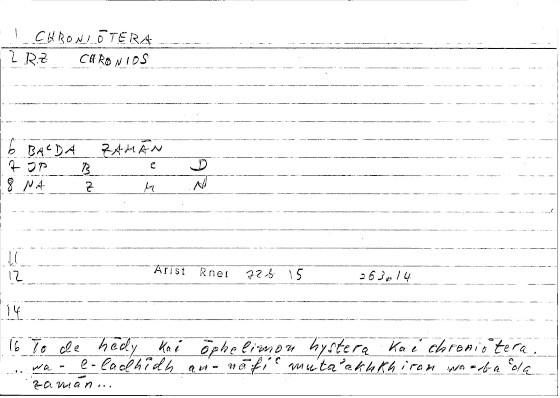 1 CHRONIŌTERA
2 RZ CHRONIOS
6 BAᶜDA ZAMĀN
7 JP B ᶜ D
8 NA Z M N
11
12 Arist Rhet 72b 15 263.14
14
16 To de hēdy kai ōphelimon hystera kai chroniōtera.
.. wa-l-ladhīdh an-nāfiᶜ mutaʾakhkhiran wa-baᶜda
zamān...